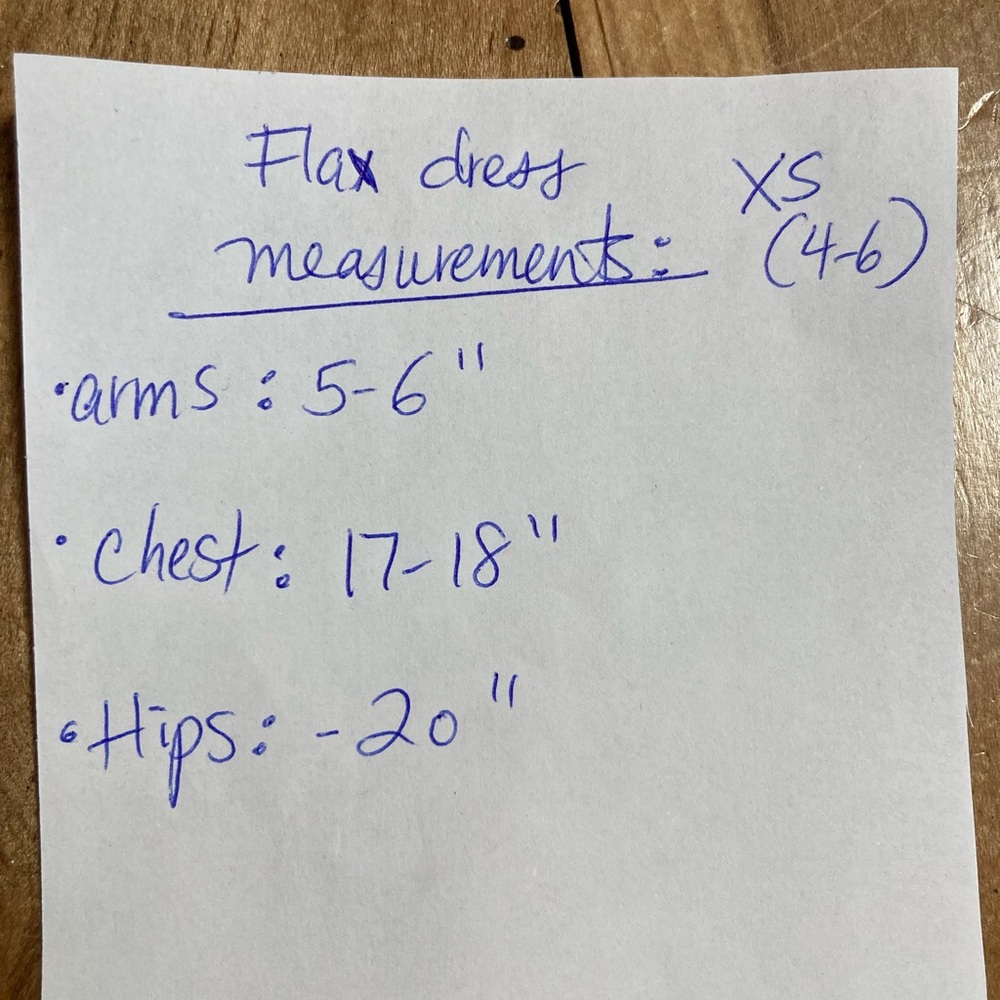 Flax dress XS
measurements: (4-6)
• arms: 5-6"
• Chest: 17-18"
• Hips: -20"